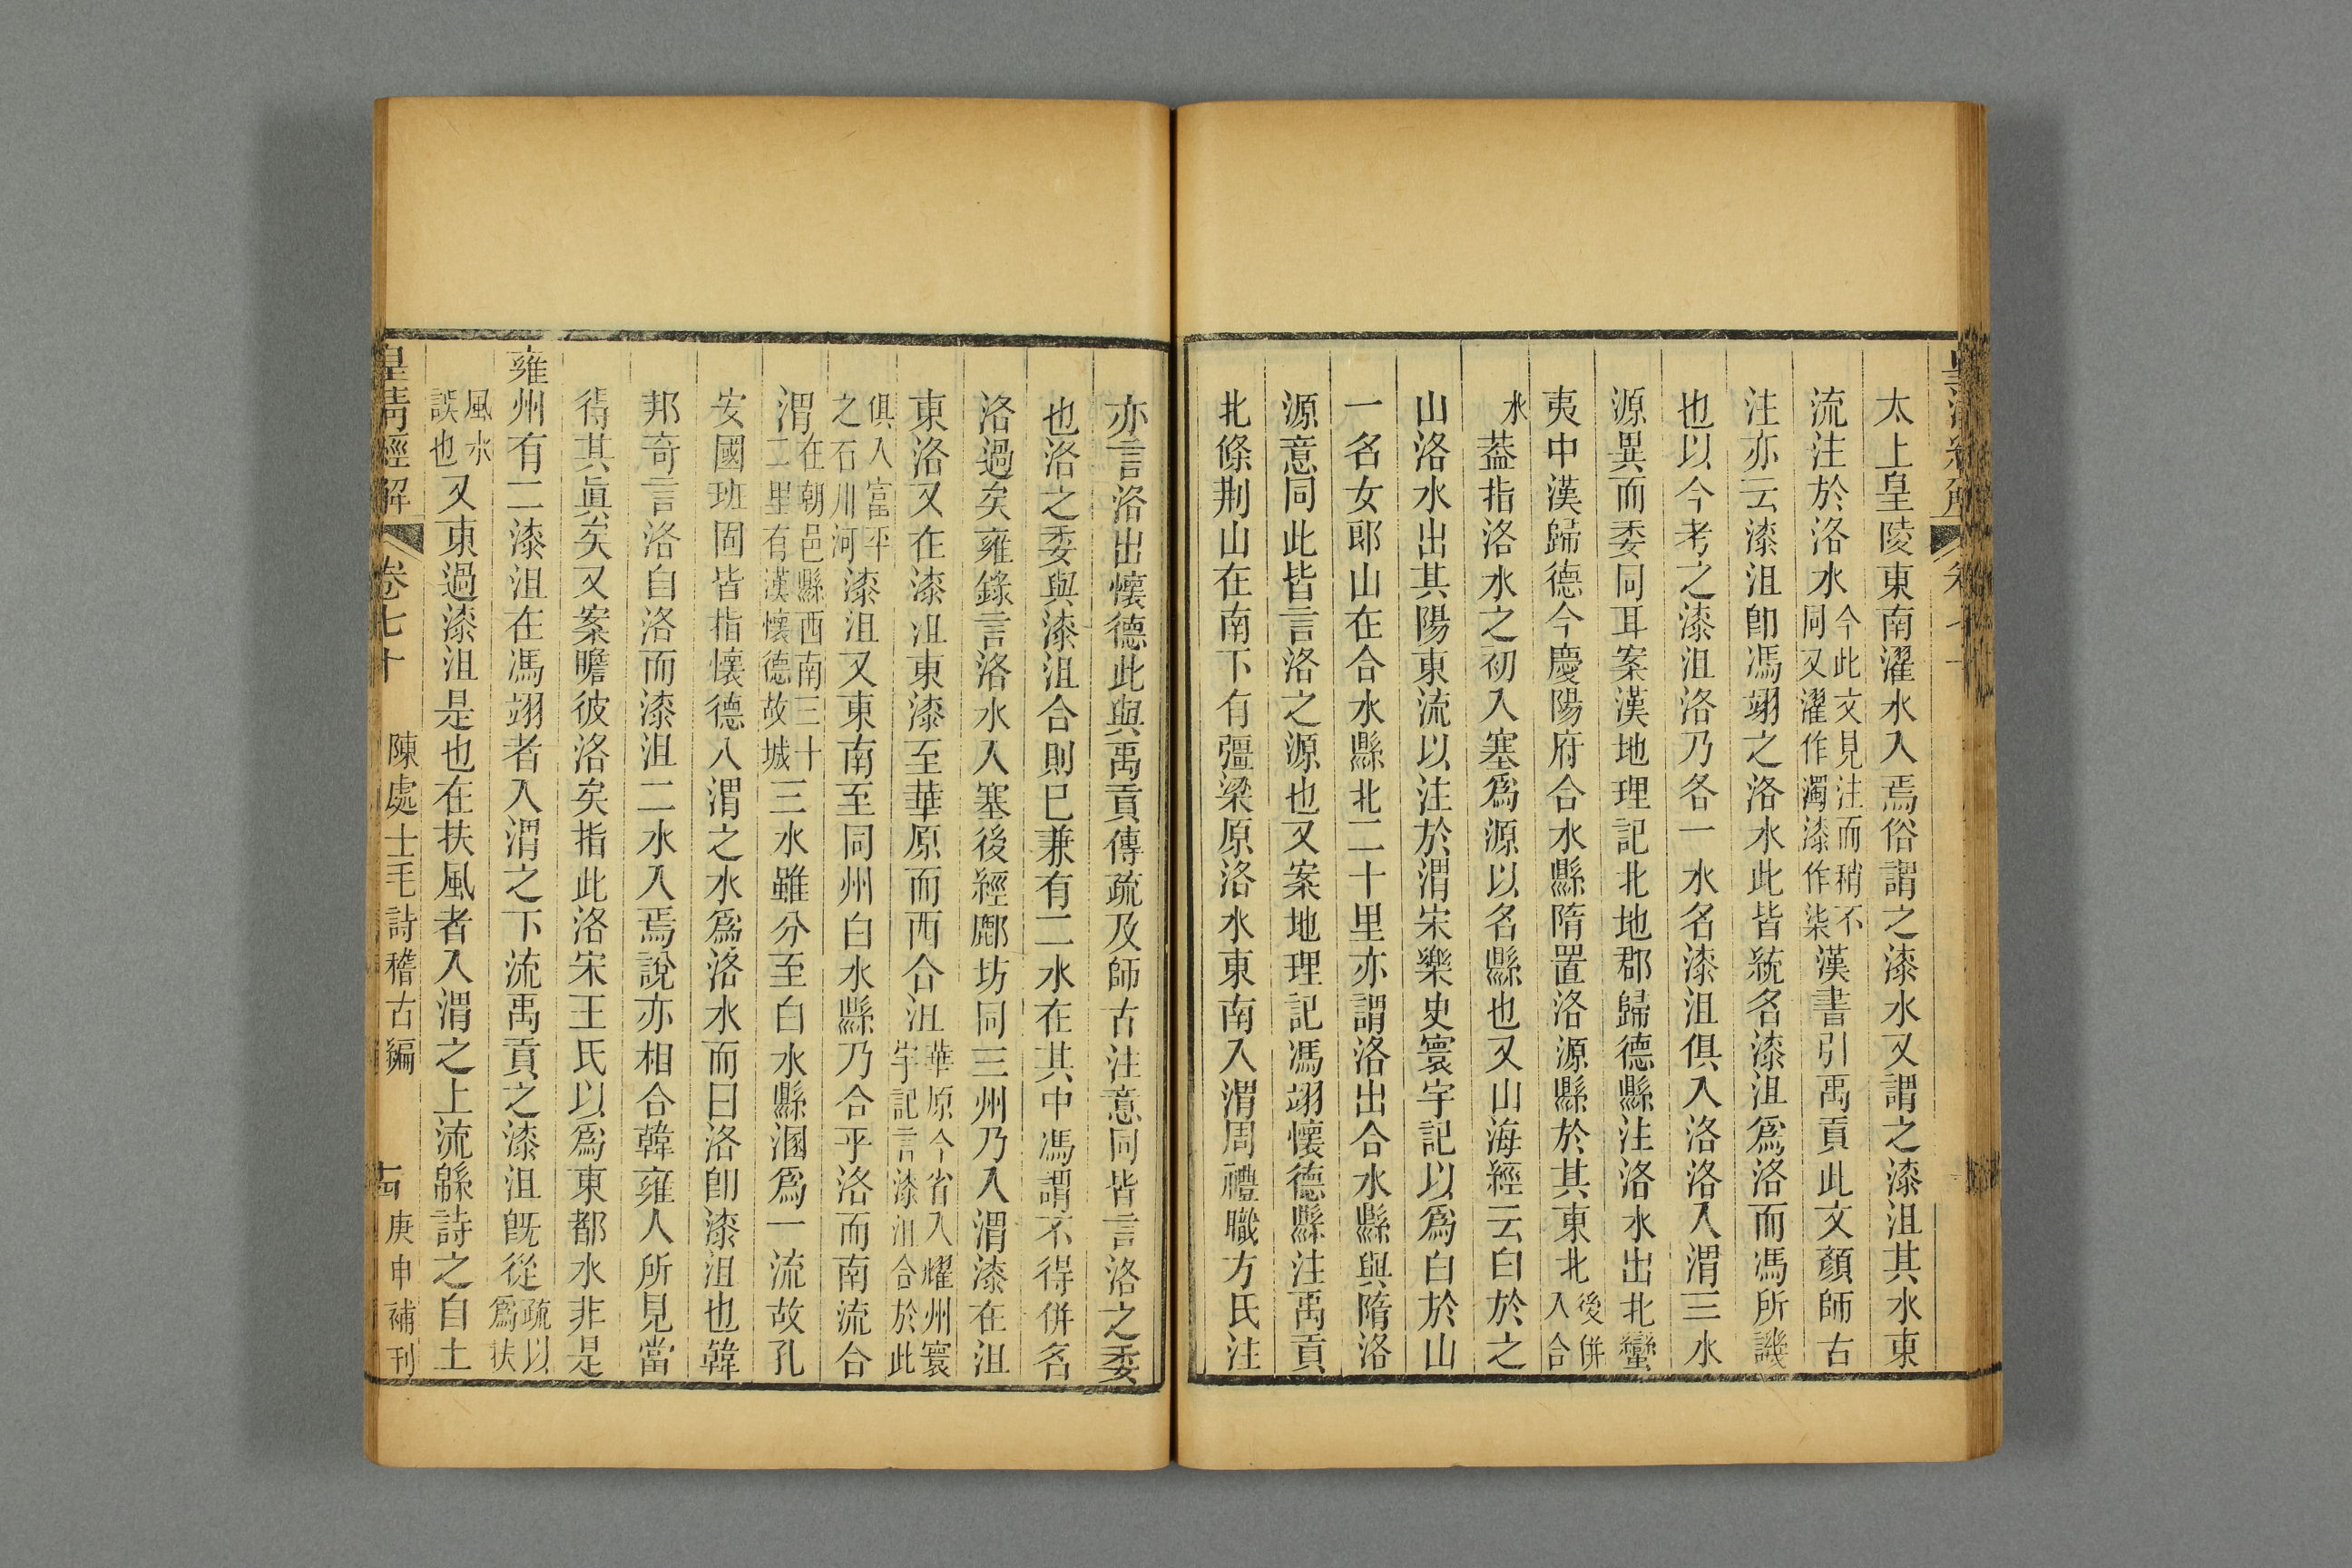 太上皇陵東南濯水入焉俗謂之漆水又謂之漆沮其水東
流注於洛水今此文見注而稍不同又濯作濁漆作柒漢書引禹貢此文顏師古
注亦云漆沮卽馮翊之洛水此皆統名漆沮爲洛而馮所譏
也以今考之漆沮洛乃各一水名漆沮俱入洛洛入渭三水
源異而委同耳案漢地理記北地郡歸德縣注洛水出北蠻
夷中漢歸德今慶陽府合水縣隋置洛源縣於其東北後併入合
水葢指洛水之初入塞爲源以名縣也又山海經云白於之
山洛水出其陽東流以注於渭宋樂史寰宇記以爲白於山
一名女郎山在合水縣北二十里亦謂洛出合水縣與隋洛
源意同此皆言洛之源也又案地理記馮翊懷德縣注禹貢
北條荆山在南下有彊梁原洛水東南入渭周禮職方氏注
亦言洛出懷德此與禹貢傳疏及師古注意同皆言洛之委
也洛之委與漆沮合則已兼有二水在其中馮謂不得併名
洛過矣雍錄言洛水入塞後經鄜坊同三州乃入渭漆在沮
東洛又在漆沮東漆至華原而西合沮華原今省入耀州寰宇記言漆沮合於此
俱入富平之石川河漆沮又東南至同州白水縣乃合乎洛而南流合
渭在朝邑縣西南三十二里有漢懷德故城三水雖分至白水縣溷爲一流故孔
安國班固皆指懷德入渭之水爲洛水而曰洛卽漆沮也韓
邦奇言洛自洛而漆沮二水入焉說亦相合韓雍人所見當
得其眞矣又案瞻彼洛矣指此洛宋王氏以爲東都水非是
雍州有二漆沮在馮翊者入渭之下流禹貢之漆沮旣從疏以爲扶
風水誤也又東過漆沮是也在扶風者入渭之上流緜詩之自土
皇淸經解 卷七十 陳處士毛詩稽古編 古 庚申補刊